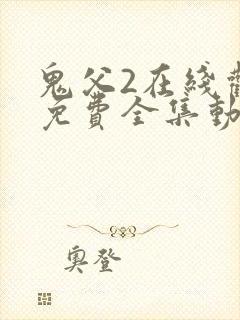 鬼父2在綫
免費全集動
奧登